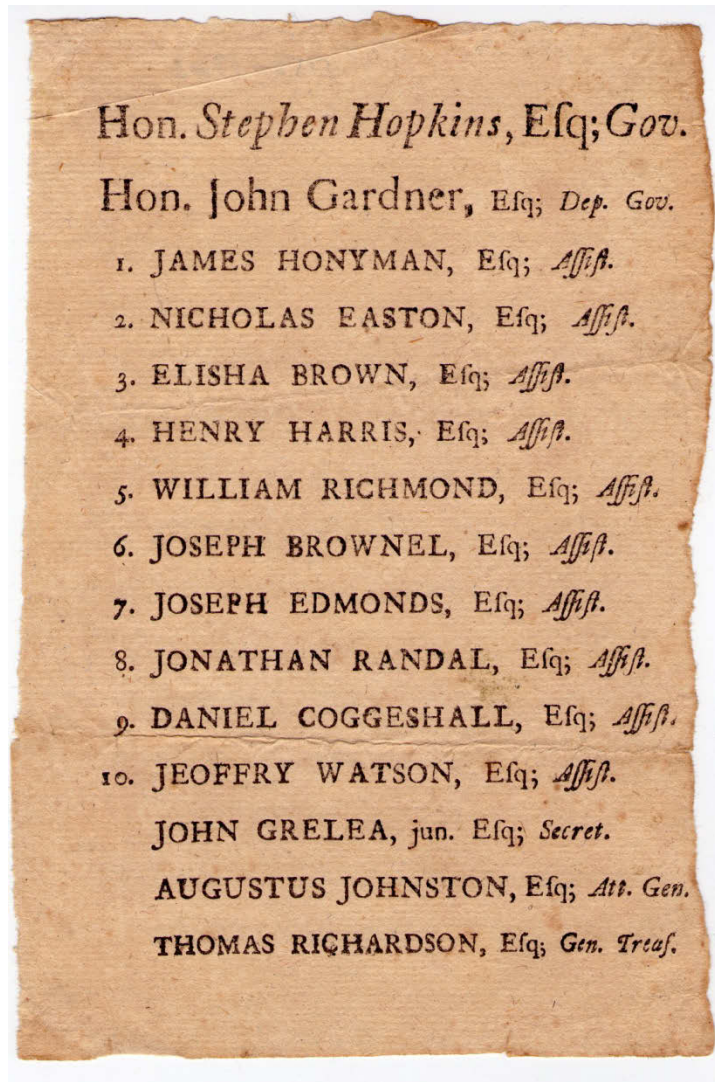 Hon. Stephen Hopkins, Eſq; Gov.
Hon. John Gardner, Eſq; Dep. Gov.
1. JAMES HONYMAN, Eſq; Aſſiſt.
2. NICHOLAS EASTON, Eſq; Aſſiſt.
3. ELISHA BROWN, Eſq; Aſſiſt.
4. HENRY HARRIS, Eſq; Aſſiſt.
5. WILLIAM RICHMOND, Eſq; Aſſiſt.
6. JOSEPH BROWNEL, Eſq; Aſſiſt.
7. JOSEPH EDMONDS, Eſq; Aſſiſt.
8. JONATHAN RANDAL, Eſq; Aſſiſt.
9. DANIEL COGGESHALL, Eſq; Aſſiſt.
10. JEOFFRY WATSON, Eſq; Aſſiſt.
JOHN GRELEA, jun. Eſq; Secret.
AUGUSTUS JOHNSTON, Eſq; Att. Gen.
THOMAS RICHARDSON, Eſq; Gen. Treaſ.